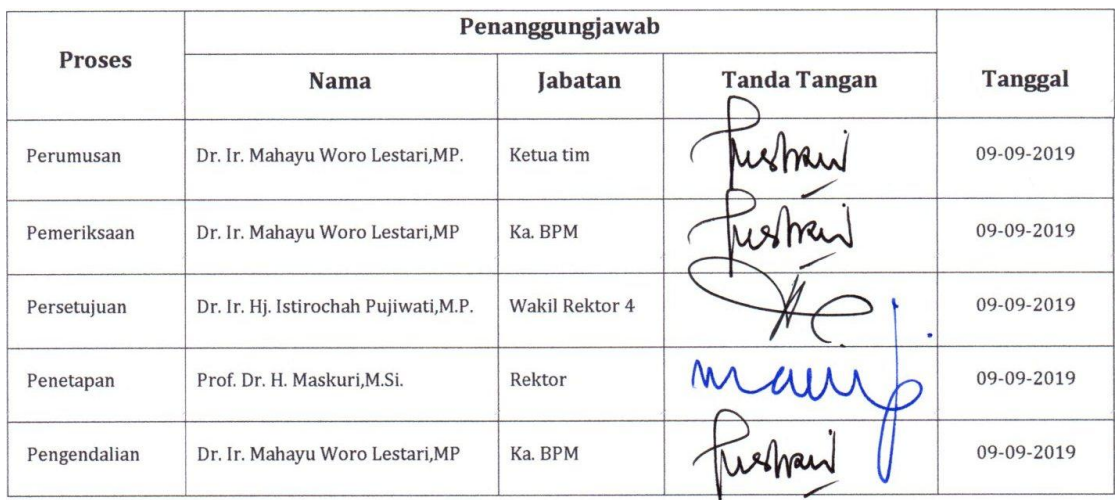 Proses
Penanggungjawab
Tanggal
Nama
Jabatan
Tanda Tangan
Perumusan
Dr. Ir. Mahayu Woro Lestari,MP.
Ketua tim
09-09-2019
Pemeriksaan
Dr. Ir. Mahayu Woro Lestari,MP
Ka. BPM
09-09-2019
Persetujuan
Dr. Ir. Hj. Istirochah Pujiwati,M.P.
Wakil Rektor 4
09-09-2019
Penetapan
Prof. Dr. H. Maskuri,M.Si.
Rektor
09-09-2019
Pengendalian
Dr. Ir. Mahayu Woro Lestari,MP
Ka. BPM
09-09-2019